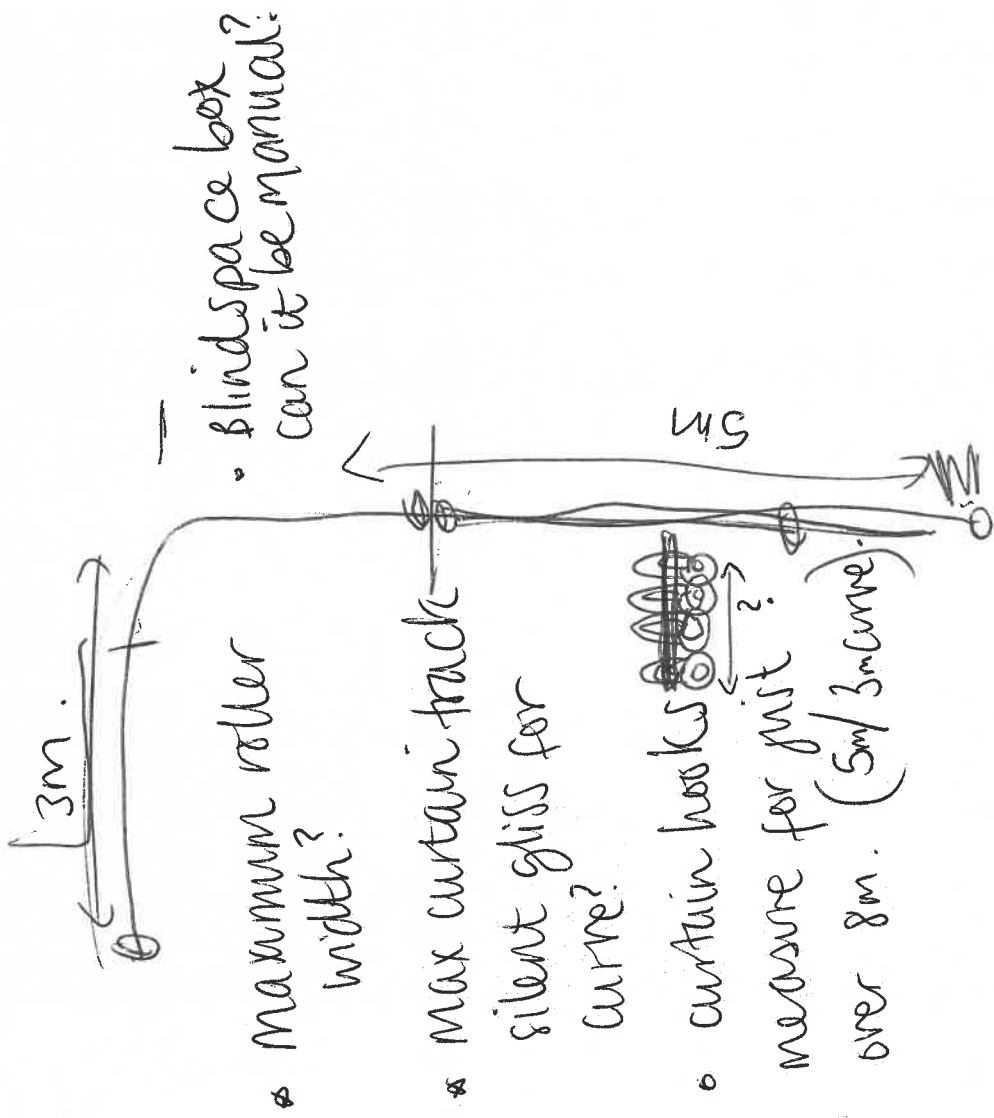 3m.
• Blindspace box
can it be manual?
* maxamum roller
width?
* max curtain track
silent gliss for
curve?
5m
• curtain hooks
?
measure for just
over 8m. (5m/3m curve.)